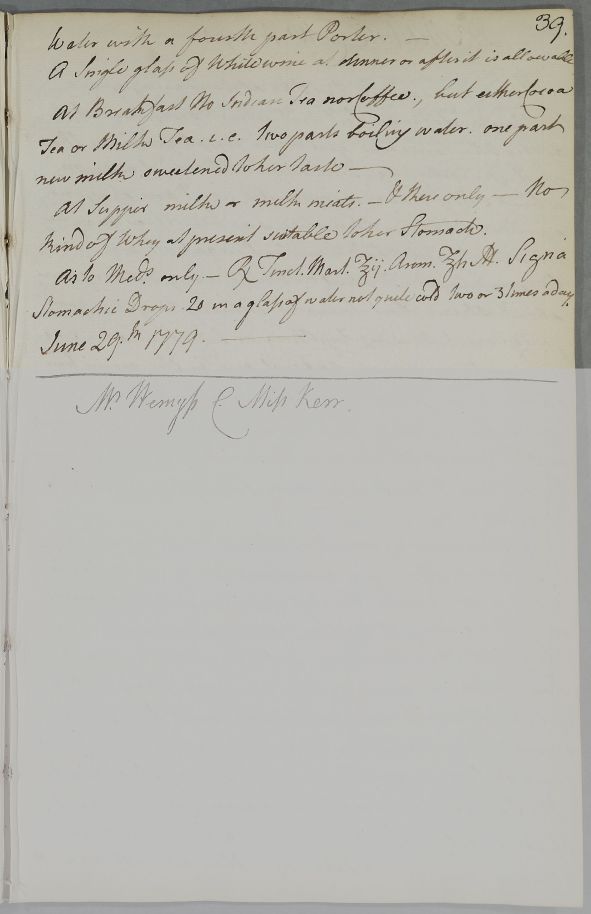 39.
Water with a fourth part Porter. —
A Single glass of White wine at dinner or after it is allowable
At Breakfast No Indian Tea nor Coffee., but either Cocoa
Tea or Milk Tea. i.e. two parts boiling water. one part
new milk sweetened to her taste —
At Supper milk or milk meats. — & these only — No
kind of Whey at present suitable to her Stomach.
As to Meds. only. — ℞ Tinct. Mart. ℥ij. Arom. ℥ß M. Signa
Stomachic Drops. 20 in a glass of water not quite cold two or 3 times a day.
June 29.th 1779. —
Mr Wemyss C. Miss Kerr.